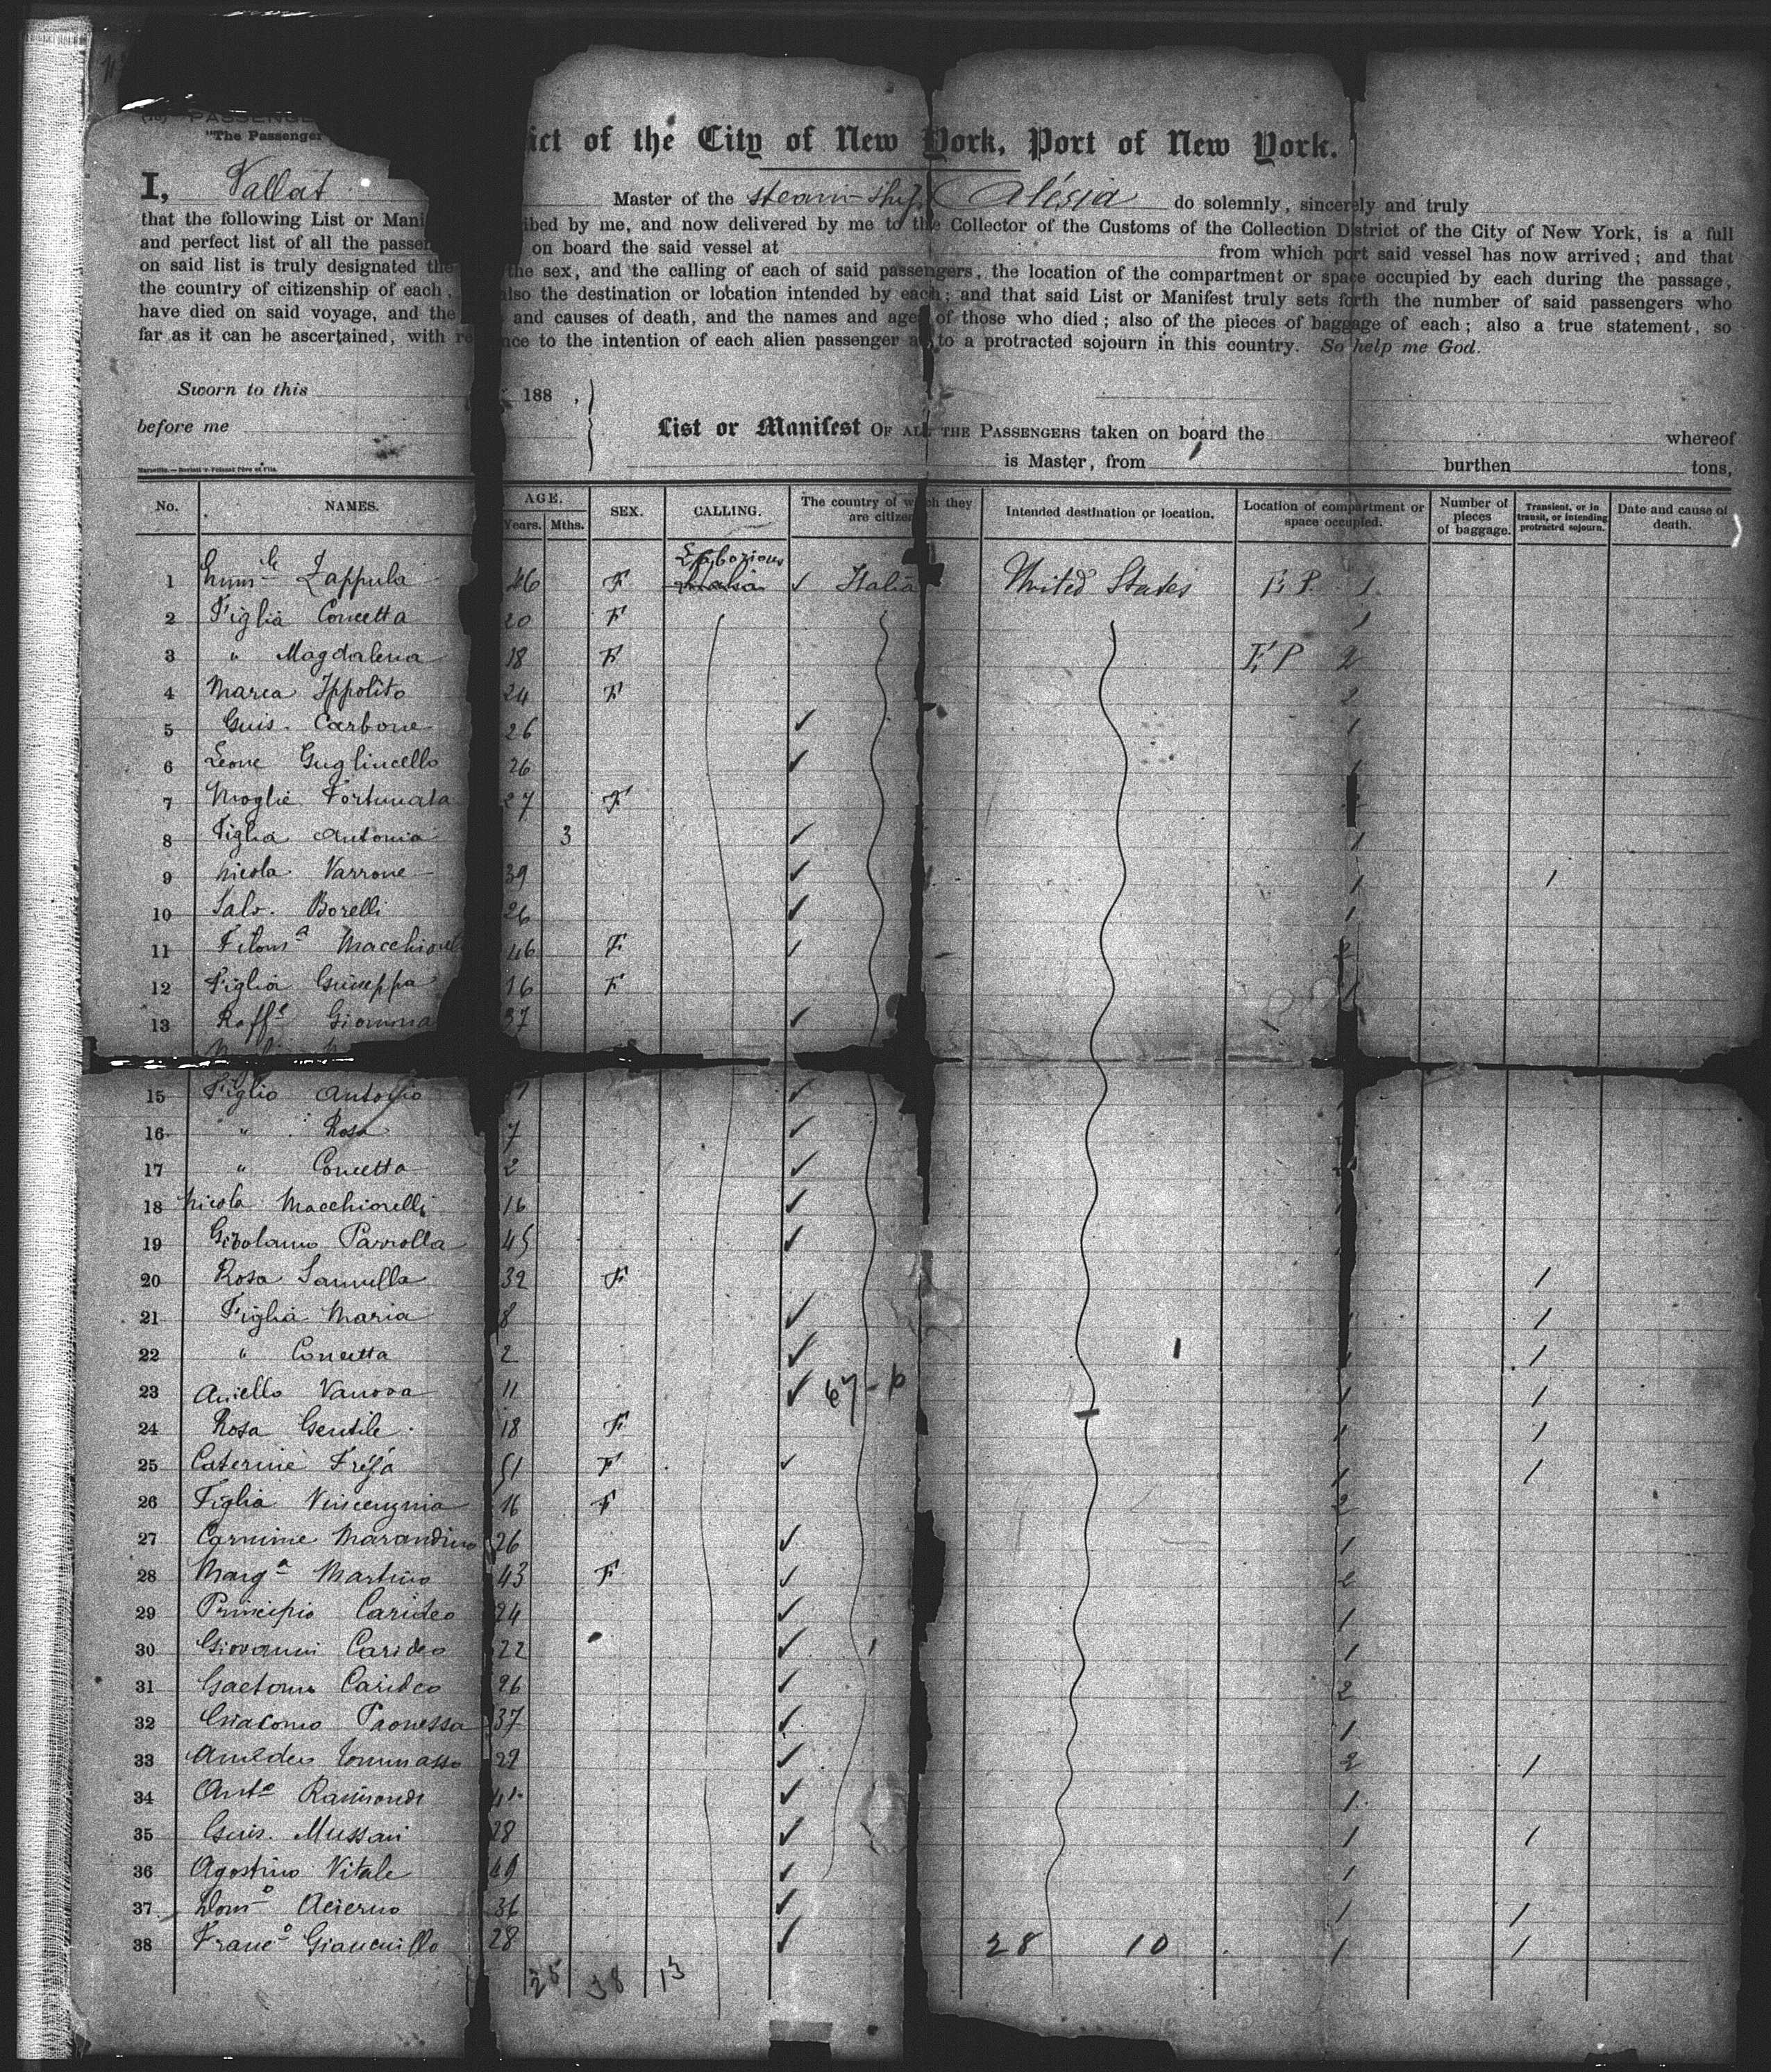 "The Passenger
ict of the City of New York, Port of New York.
I, Vallat Master of the steam-ship Alésia do solemnly, sincerely and truly
that the following List or Mani ibed by me, and now delivered by me to the Collector of the Customs of the Collection District of the City of New York, is a full
and perfect list of all the passen on board the said vessel at from which port said vessel has now arrived; and that
on said list is truly designated the the sex, and the calling of each of said passengers, the location of the compartment or space occupied by each during the passage,
the country of citizenship of each, also the destination or location intended by each; and that said List or Manifest truly sets forth the number of said passengers who
have died on said voyage, and the and causes of death, and the names and ages of those who died; also of the pieces of baggage of each; also a true statement, so
far as it can be ascertained, with re nce to the intention of each alien passenger as to a protracted sojourn in this country. So help me God.
Sworn to this 188 ,
before me
List or Manifest OF ALL THE PASSENGERS taken on board the whereof
is Master, from burthen tons,
No. NAMES. AGE. Years. Mths. SEX. CALLING. The country of which they are citizen Intended destination or location. Location of compartment or space occupied. Number of pieces of baggage. Transient, or in transit, or intending protracted sojourn. Date and cause of death.
1 Zappula 46 F Italia United States E P 1
2 Figlia Concetta 20 F 1
3 " Magdalena 18 F E P 2
4 Maria Ippolito 24 F 2
5 Guis. Carbone 26 1
6 Leone Guglincello 26 1
7 Moglie Fortunata 27 F
8 Figlia Antonia 3 1
9 Nicola Varrone 39 1 /
10 Salv. Borelli 26 1
11 Filomª Macchiorel 46 F 2
12 Figlia Guiseppa 16 F 1
13 Raffe Giomma 37
15 Figlio Antonio
16 " Rosa 7
17 " Concetta 2
18 Nicola Macchiorelli 16
19 Girolamo Parrolla 45
20 Rosa Iannulla 32 F /
21 Figlia Maria 8 1 /
22 " Concetta 2 1 /
23 Aniello Vanova 11 67 - 1 /
24 Rosa Gentile 18 F 1 /
25 Caterine 51 F 1 /
26 Figlia Vincenznia 16 F 2
27 Carmine Marandino 26 1
28 Margª Martino 43 F 2
29 Principio Carideo 24 1
30 Giovanni Carideo 22 1
31 Gaetano Carideo 26 2
32 Giacomo Paonessa 37 1
33 Amedeo Tommasso 29 2 /
34 Antº Raimondi 41 1
35 Guis. Mussari 28 1 /
36 Agostino Vitale 49 1
37 Domº Acierno 36 1 /
38 Francº Giancuillo 28 28 10 1 /
25 38 13